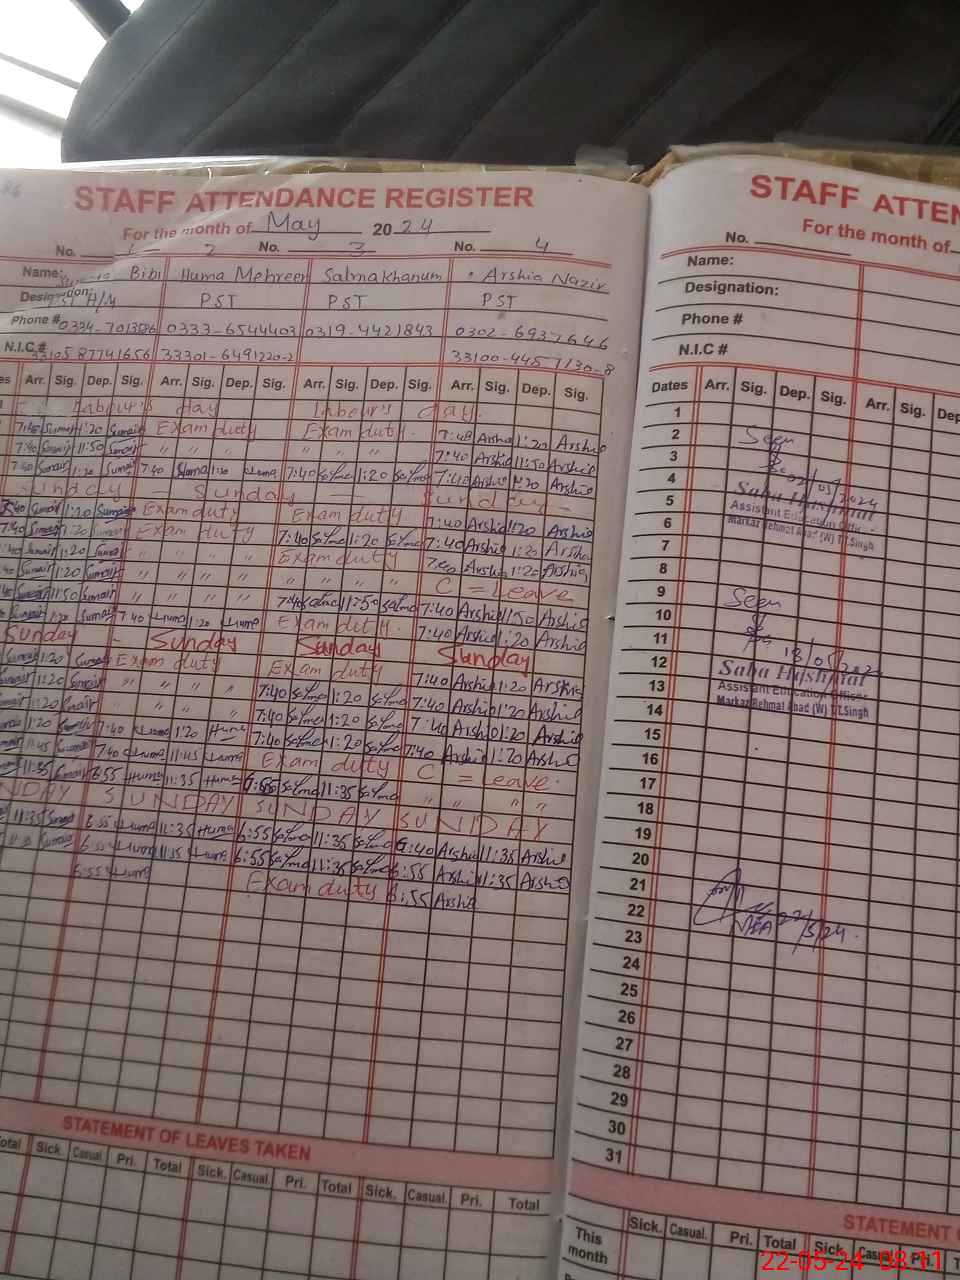 STAFF ATTENDANCE REGISTER
For the month of May 2024
No. 1 2 No. 3 No. 4
Name: Bibi Huma Mehreen Salma Khanum Arshia Nazir
Designation: H/M PST PST PST
Phone # 0333-6544403 0319-4421843 0302-6937646
N.I.C # 33301-6491220-2 33100-4457130-8
Arr. Sig. Dep. Sig. Arr. Sig. Dep. Sig. Arr. Sig. Dep. Sig. Arr. Sig. Dep. Sig.
Labour's day Labour's day.
7:40 Sumair 1:20 Sumair Exam duty Exam duty. 7:40 Arshia 1:20 Arshia
7:40 Sumair 11:50 Sumair " " " " " " " " 7:40 Arshia 11:50 Arshia
7:40 Sumair 1:20 Sumair 7:40 Huma 1:20 Huma 7:40 Salma 1:20 Salma 7:40 Arshia 1:20 Arshia
Sunday - Sunday - Sunday -
7:40 Sumair 1:20 Sumair Exam duty Exam duty 7:40 Arshia 1:20 Arshia
7:40 Sumair 1:20 Sumair Exam duty 7:40 Salma 1:20 Salma 7:40 Arshia 1:20 Arshia
7:40 Sumair 1:20 Sumair " " " " Exam duty 7:40 Arshia 1:20 Arshia
Sumair 1:20 Sumair " " " " " " " " C = Leave
Sumair 11:50 Sumair " " " " 7:40 Salma 11:50 Salma 7:40 Arshia 11:50 Arshia
Sumair 1:20 Sumair 7:40 Huma 1:20 Huma Exam duty. 7:40 Arshia 1:20 Arshia
Sunday - Sunday Sunday Sunday
Sumair 1:20 Sumair Exam duty Exam duty 7:40 Arshia 1:20 Arshia
Sumair 1:20 Sumair " " " " 7:40 Salma 1:20 Salma 7:40 Arshia 1:20 Arshia
1:20 Sumair " " " " 7:40 Salma 1:20 Salma 7:40 Arshia 1:20 Arshia
1:20 Sumair 7:40 Huma 1:20 Huma 7:40 Salma 1:20 Salma 7:40 Arshia 1:20 Arshia
11:45 Sumair 7:40 Huma 11:45 Huma Exam duty C = Leave.
11:35 Sumair 6:55 Huma 11:35 Huma 6:55 Salma 11:35 Salma " " " "
SUNDAY SUNDAY SUNDAY
11:35 Sumair 6:55 Huma 11:35 Huma 6:55 Salma 11:35 Salma 6:40 Arshia 11:35 Arshia
Sumair 6:55 Huma 11:35 Huma 6:55 Salma 11:35 Salma 6:55 Arshia 11:35 Arshia
6:55 Huma Exam duty 6:55 Arshia
STATEMENT OF LEAVES TAKEN
Total Sick. Casual Pri. Total Sick. Casual. Pri. Total Sick. Casual. Pri. Total
STAFF ATTEN
For the month of
No.
Name:
Designation:
Phone #
N.I.C #
Dates Arr. Sig. Dep. Sig. Arr. Sig. Dep
1
2 Seen
3
4 02/05/2024
5 Saba Hashmat
Assistant Education Officer
6 Markaz Rehmat Abad (W) T.T.Singh
7
8
9 Seen
10
11 13/05/2024
12 Saba Hashmat
13 Assistant Education Officer
Markaz Rehmat Abad (W) T.T.Singh
14
15
16
17
18
19
20
21
22 22/5/24.
23 MEA
24
25
26
27
28
29
30
31
STATEMENT
This month Sick. Casual. Pri. Total Sick. Casual. Pri.
22-05-24 08:11